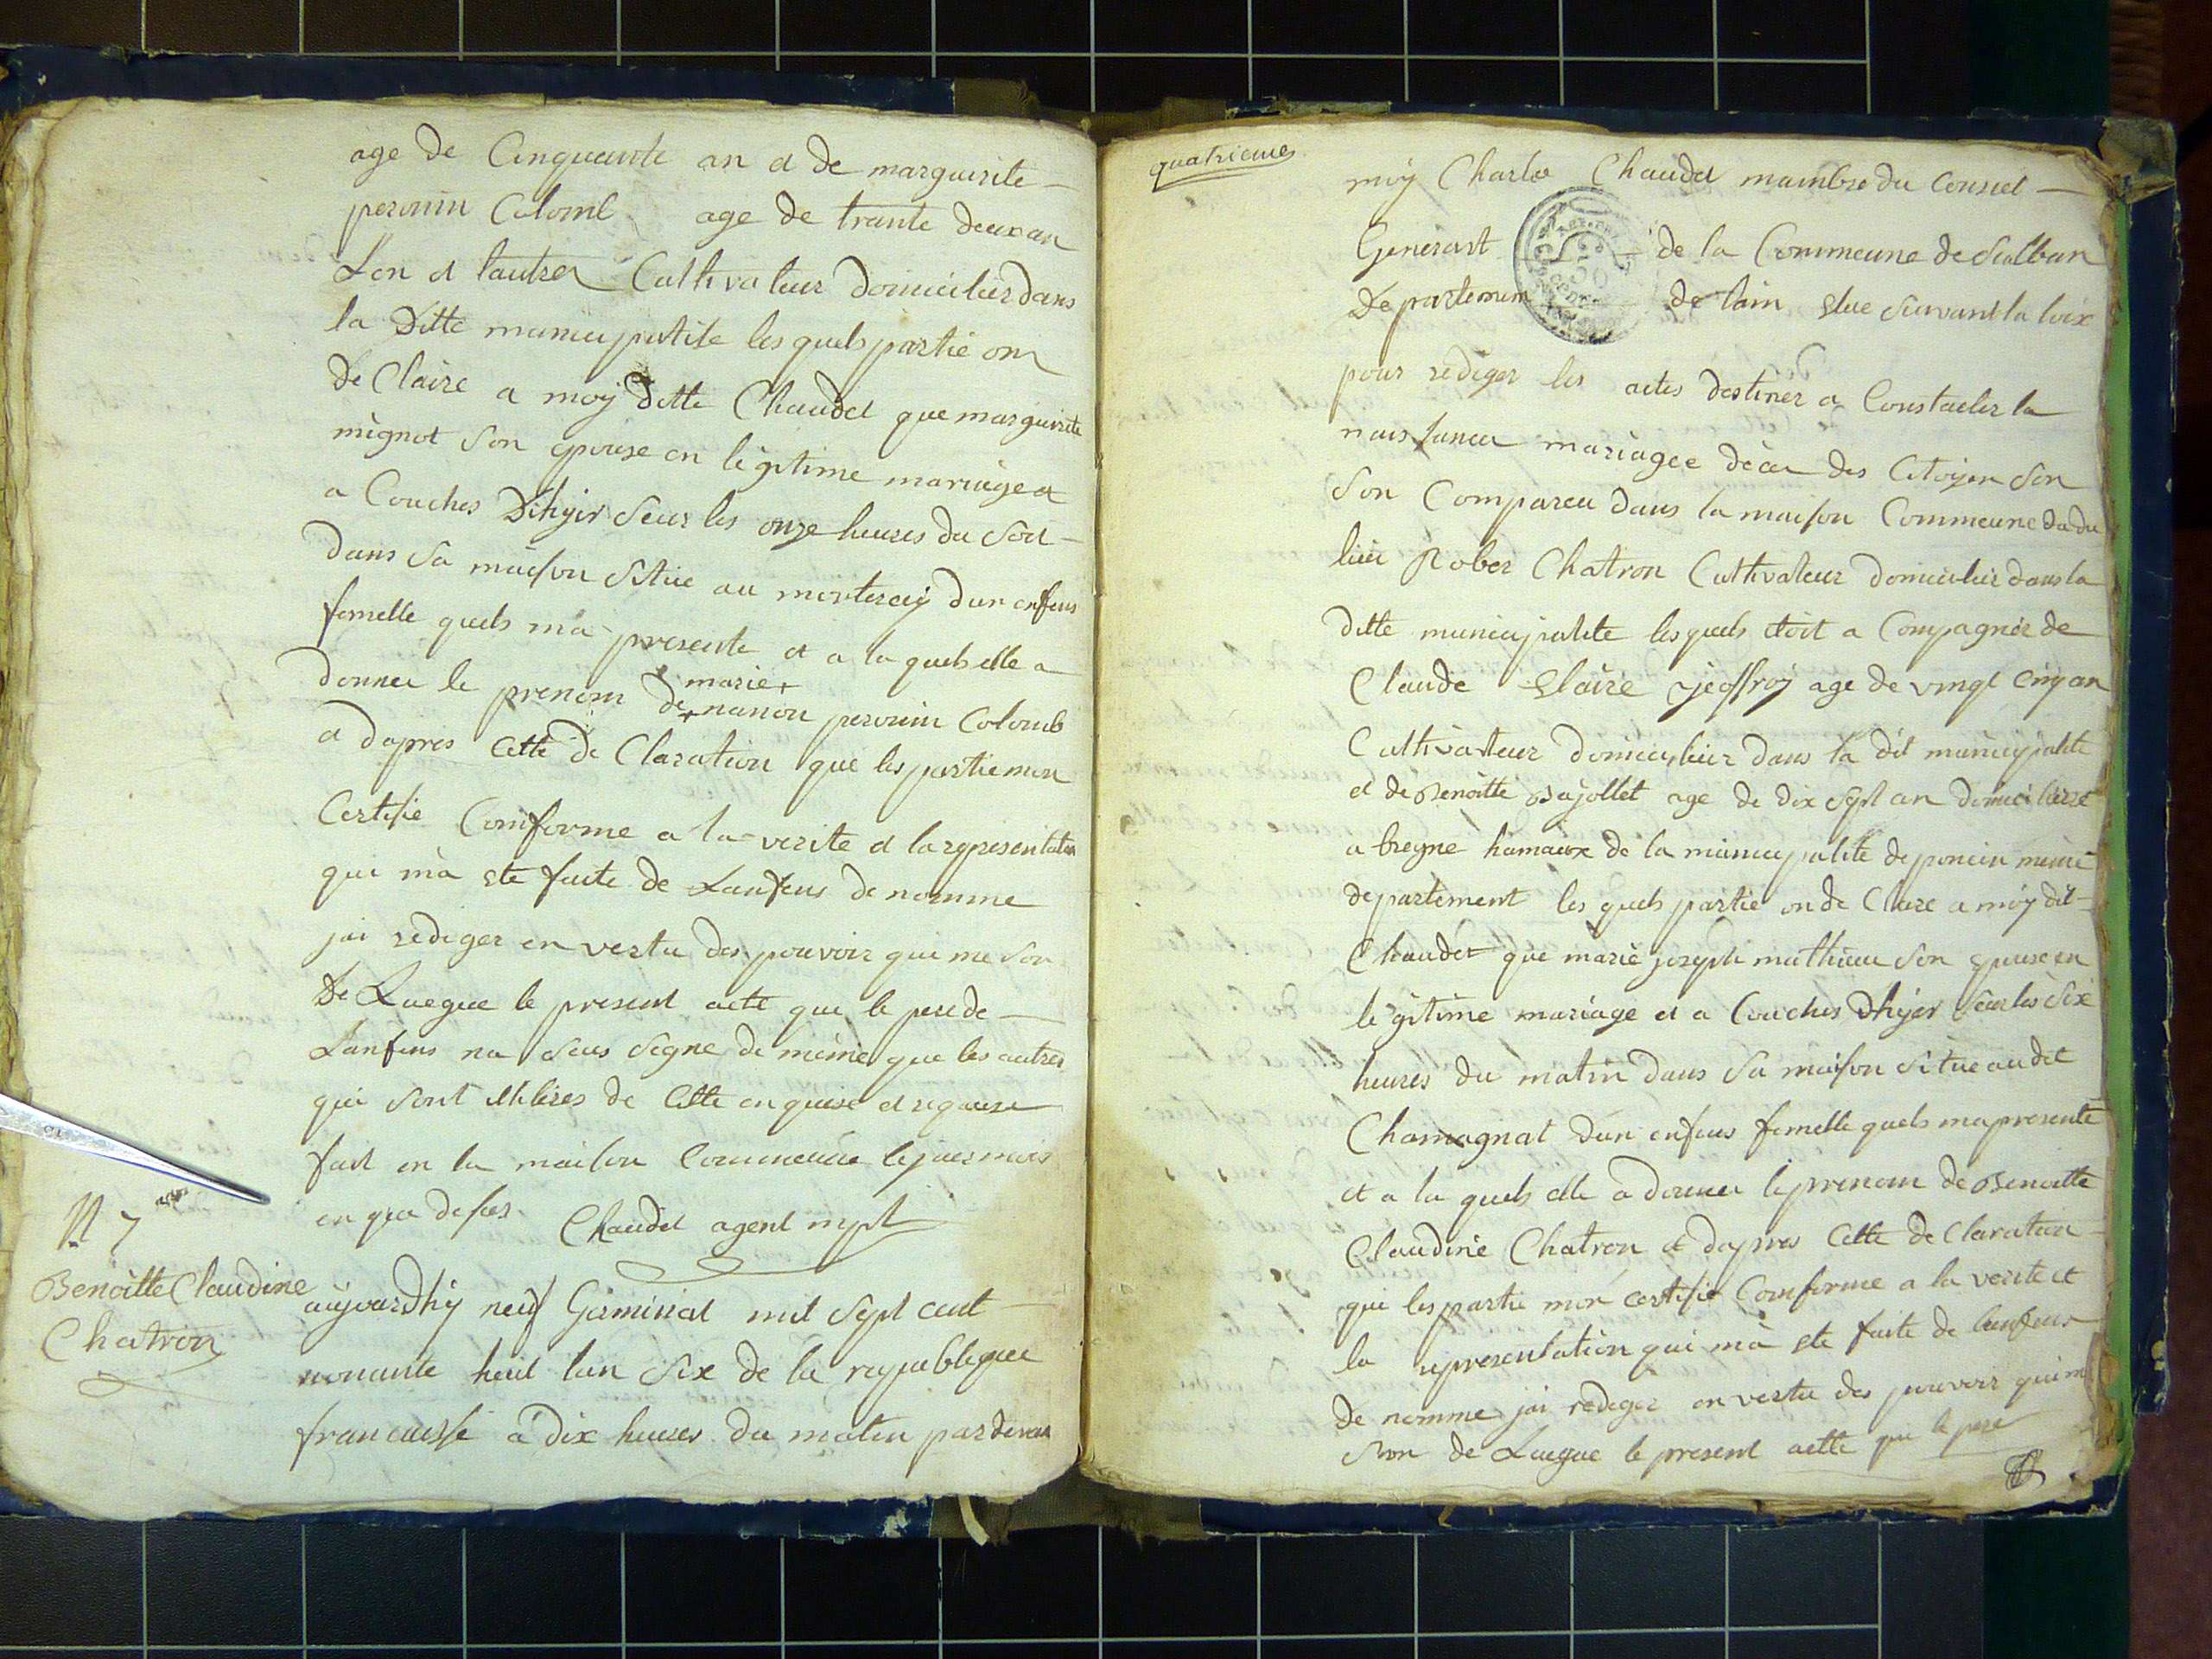 age de Cinquante an et de marguirite
perouin Colomb age de trante deux an
Lon et lautrer Cultivateur domicilier dans
la Ditte municipalite les quels partie on
de Claire a moy ditte Chaudet que marguirite
mignot son epouse en legitime mariage et
a Couches Dihyir seur les onze heures du soir
dans sa maison situe au morterey dun enfens
femelle quels ma presente et a la quels elle a
marie +
donner le prenom de + nanon perouin Colomb
et dapres cette de Claration que les partie mon
Certifie Comforme a la verite et la representation
qui ma ete faite de Lanfens de nomme
jai rediger en vertu des pouvoir qui me son
de Luegue le present acte que le pere de
Lanfens na seus signe de meme que les autres
qui sont de cette en quise et requise
fait en la maison Commeune le juer mois
en que desus. Chaudet agent mpl
N 7
Benoitte Claudine
Chatron
aujourdhy neuf Germinal mil sept cent
nonante huit lan six de la republiquee
francaisse a dix heures du matin pardevan
quatrieme
moy Charles Chaudet mambre du Conseil
Generart de la Commeune de Stalban
Departement de lain elue suivant la loix
pour rediger les actes destiner a Constacler la
naissance mariagee deces des Citoyen son
son Compareu dans la maison Commeune du du
lieu Rober Chatron Cultivateur domicilier dans la
ditte municipalite lesquels etoit a Compagner de
Claude Claire jeoffroy age de vingt cinq an
Cultivateur domicilier dans la dit municipalite
et de Benoitte Bajollet age de dix sept an domicilierre
a breyne hamaux de la municipalite de poncin meme
departement les quels partie on de Claire a moy dit
Chaudet que marie joseph mathieu son epuse en
legitime mariage et a Couches Dhyer seur les six
heures du matin dans sa maison situe audit
Chamagnat dun enfens femelle quels ma presente
et a la quels elle a donner le prenom de Benoitte
Claudine Chatron et dapres cette de Claration
que les partie mon certifie Comforme a la verite et
la representation qui ma ete faite de lenfens
de nomme jai rediger en vertu des pouvoir qui m
son de Luegue le present actte que le pere